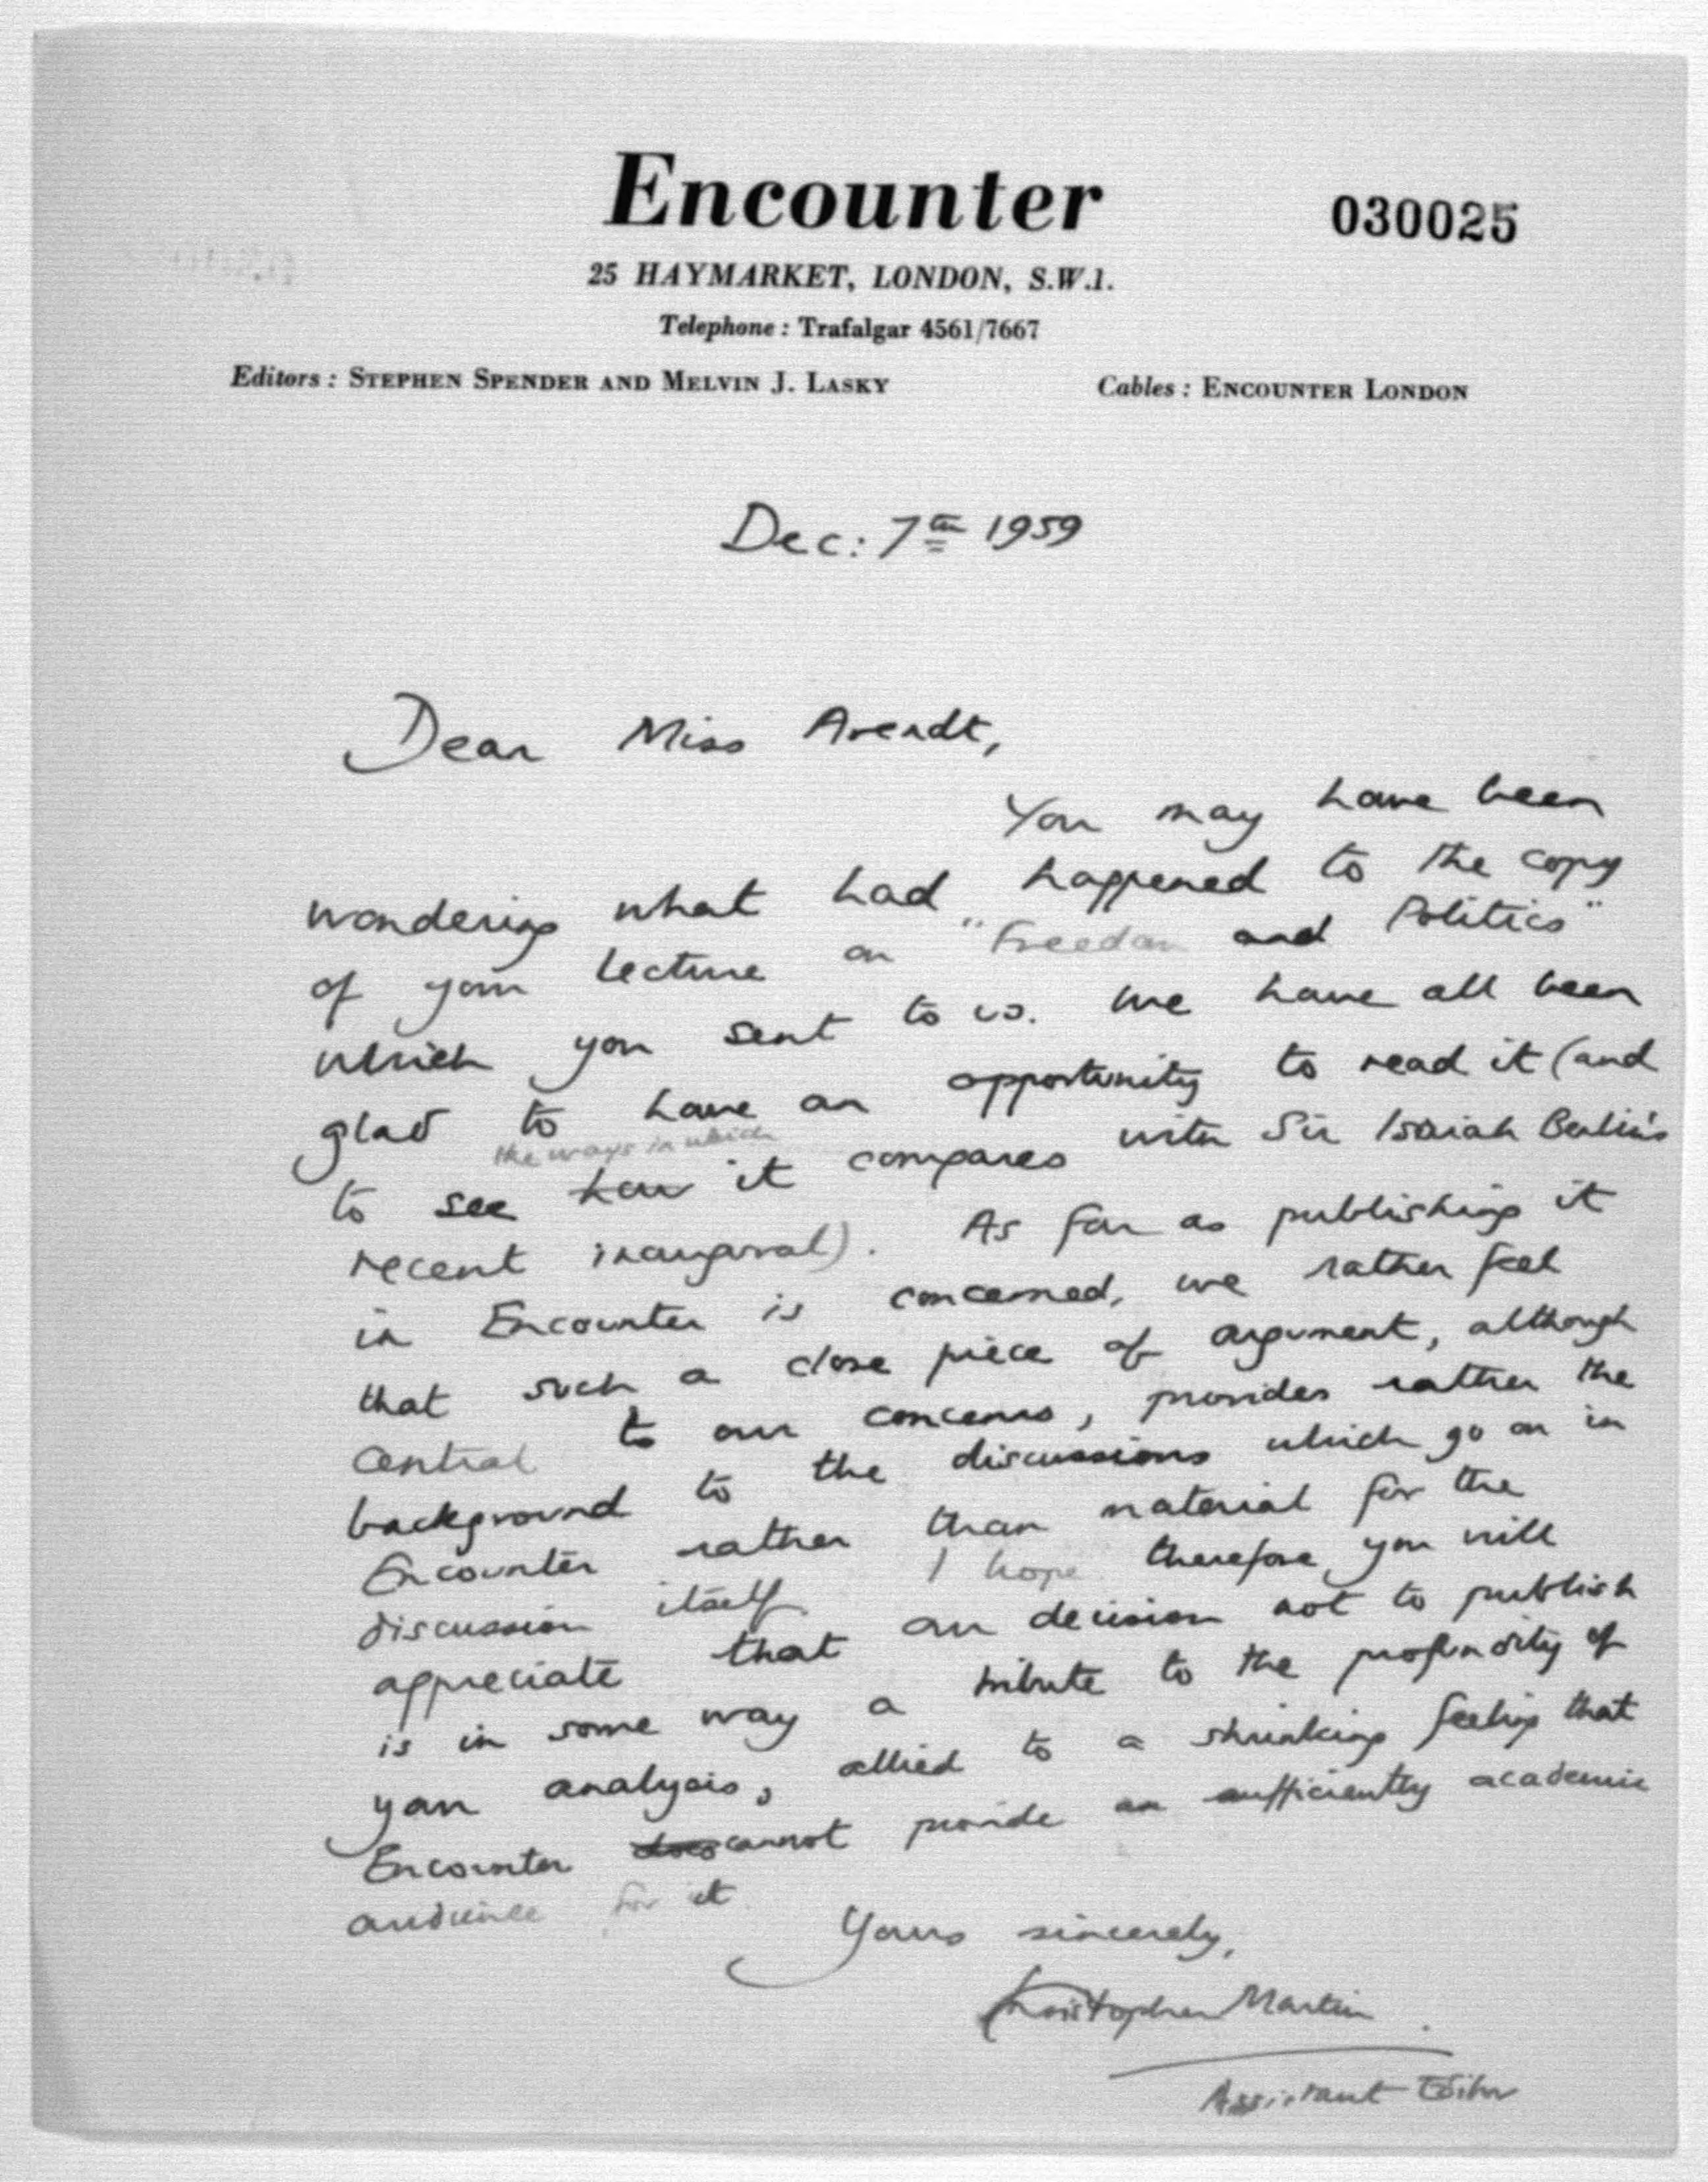 Encounter
030025
25 HAYMARKET, LONDON, S.W.1.
Telephone : Trafalgar 4561/7667
Editors : STEPHEN SPENDER AND MELVIN J. LASKY Cables : ENCOUNTER LONDON
Dec: 7th 1959
Dear Miss Arendt,
You may have been
wondering what had happened to the copy
of your lecture on "Freedom and Politics"
which you sent to us. We have all been
glad to have an opportunity to read it (and
the ways in which
to see how it compares with Sir Isaiah Berlin's
recent inaugural). As far as publishing it
in Encounter is concerned, we rather feel
that such a close piece of argument, although
central to our concerns, provides rather the
background to the discussions which go on in
Encounter rather than material for the
discussion itself. I hope therefore you will
appreciate that our decision not to publish
is in some way a tribute to the profundity of
your analysis, allied to a shrinking feeling that
Encounter does cannot provide an sufficiently academic
audience for it.
Yours sincerely,
Kristopher Martin
Assistant Editor